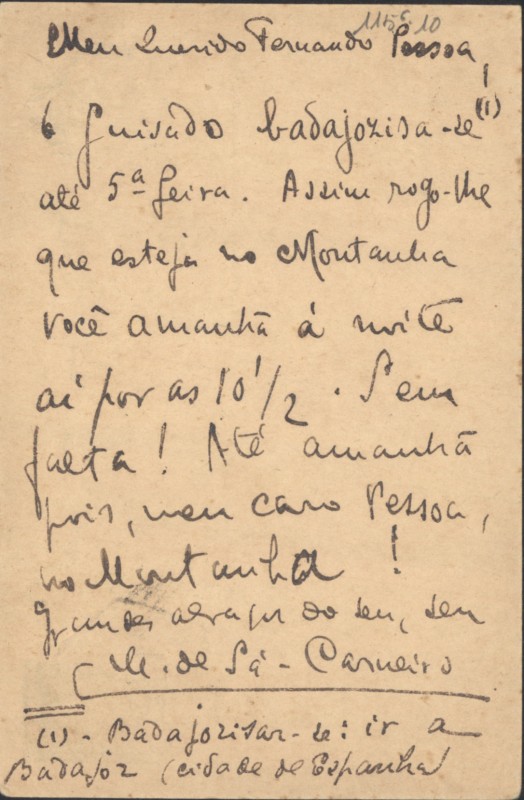 115⁵-10
Meu Querido Fernando Pessoa,
O Guisado badajozisa-se (1)
até 5ª feira. Assim rogo-lhe
que esteja no Montanha
você amanhã á noite
aí por as 10 1/2. Sem
falta! Até amanhã
pois, meu caro Pessoa,
no Montanha!
Grandes abraços do seu, seu
M. de Sá-Carneiro
(1) - Badajozisar-se: ir a
Badajoz (cidade de Espanha)